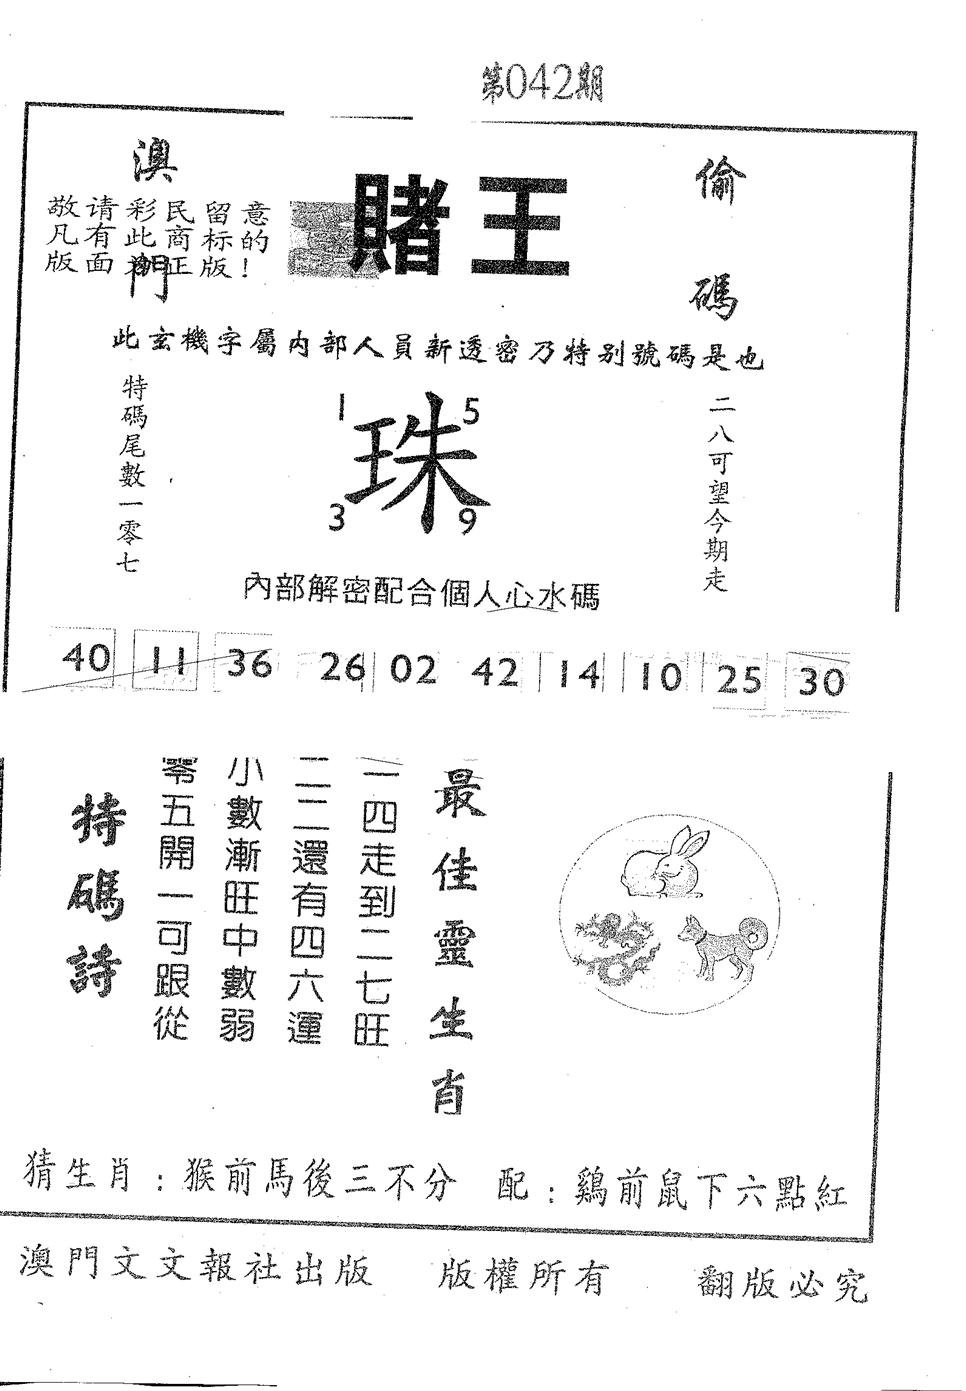 第042期
澳門
敬请彩民留意
凡有此商标的
版面為正版!
賭王
偷碼
此玄機字屬内部人員新透密乃特别號碼是也
特碼尾數一零七
1 5
珠
3 9
二八可望今期走
內部解密配合個人心水碼
40 11 36 26 02 42 14 10 25 30
最佳靈生肖
一四走到二七旺
二二還有四六運
小數漸旺中數弱
零五開一可跟從
特碼詩
猜生肖:猴前馬後三不分 配:鷄前鼠下六點紅
澳門文文報社出版 版權所有 翻版必究